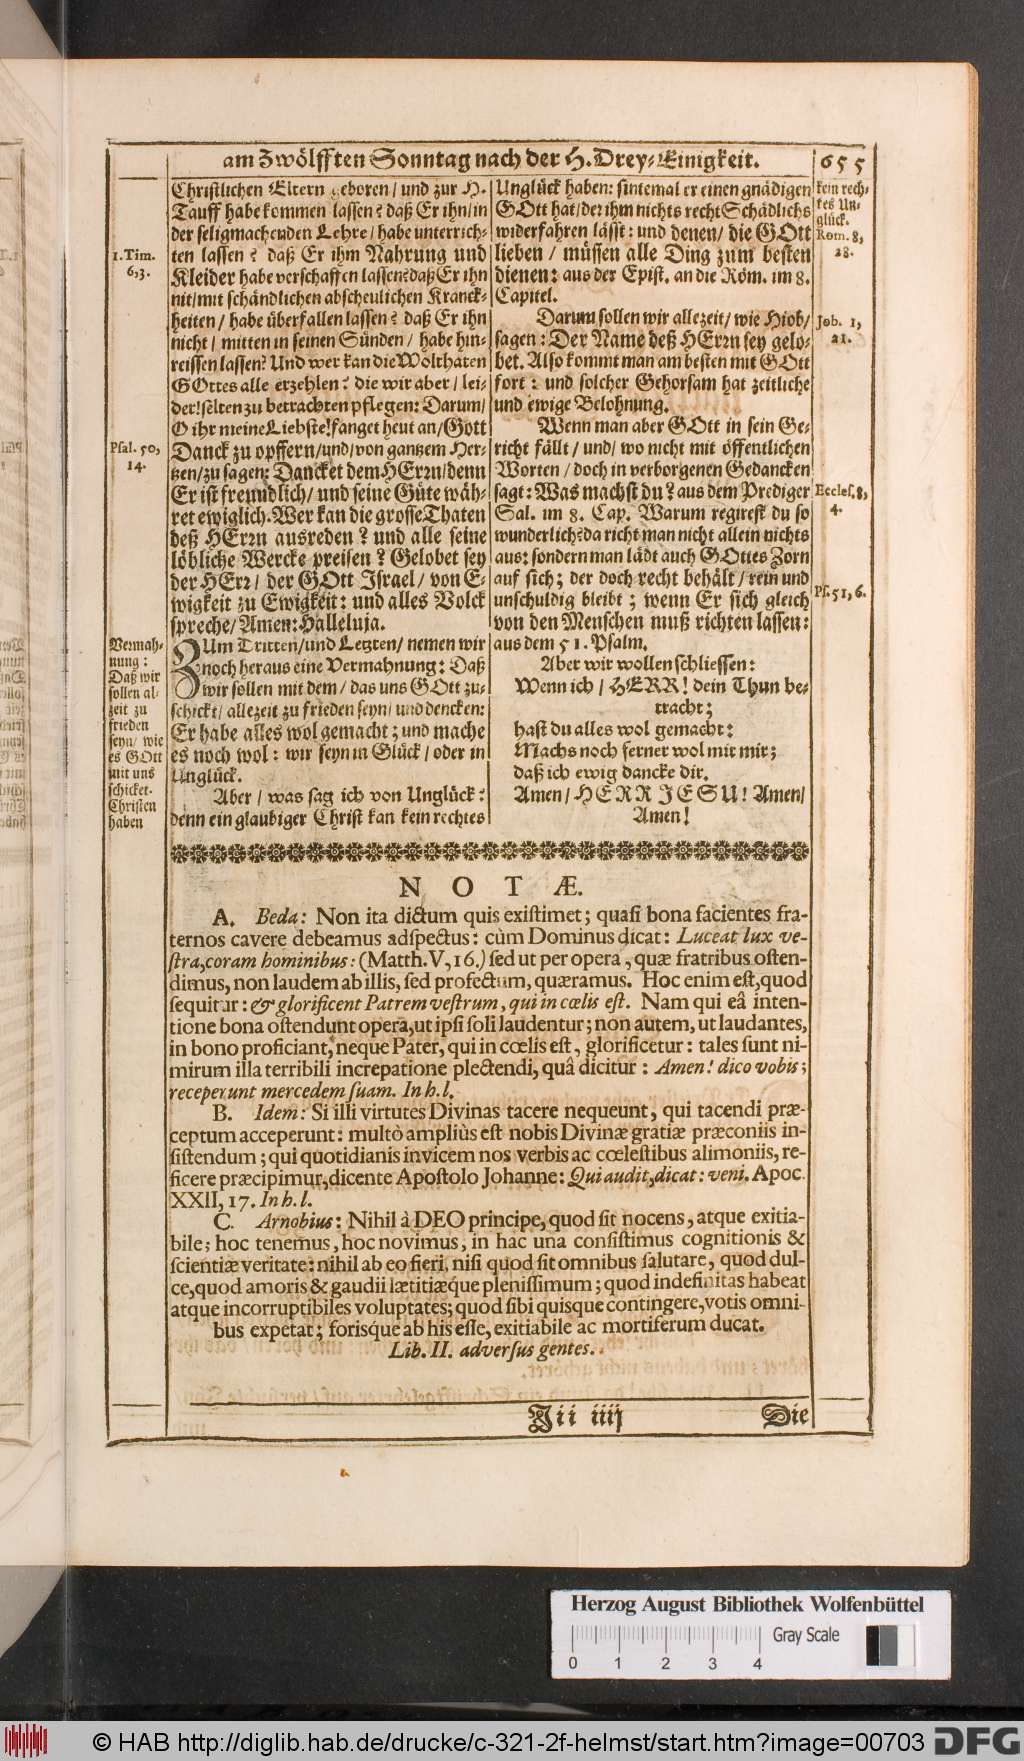 am Zwölfften Sonntag nach der H. Drey-Einigkeit.
655
1. Tim.
6,3.
Psal. 50,
14.
Vermah-
nung:
Daß wir
sollen al-
zeit zu
frieden
seyn/ wie
es GOtt
mit uns
schicket.
Christen
haben
Christlichen Eltern geboren/ und zur H.
Tauff habe kommen lassen? daß Er ihn/ in
der seligmachenden Lehre/ habe unterrich-
ten lassen? daß Er ihm Nahrung und
Kleider habe verschaffen lassen? daß Er ihn
nit/ mit schändlichen abscheulichen Kranck-
heiten/ habe überfallen lassen? daß Er ihn
nicht/ mitten in seinen Sünden/ habe hin-
reissen lassen? Und wer kan die Wolthaten
GOttes alle erzehlen? die wir aber/ lei-
der! selten zu betrachten pflegen: Darum/
O ihr meine Liebste! fanget heut an/ Gott
Danck zu opffern/ und/ von gantzem Her-
tzen/ zu sagen: Dancket dem HErrn/ denn
Er ist freundlich/ und seine Güte wäh-
ret ewiglich. Wer kan die grosse Thaten
deß HErrn ausreden? und alle seine
löbliche Wercke preisen? Gelobet sey
der HErr/ der GOtt Israel/ von E-
wigkeit zu Ewigkeit: und alles Volck
spreche/ Amen: Halleluja.
ZUm Dritten/ und Letzten/ nemen wir
noch heraus eine Vermahnung: Daß
wir sollen mit dem/ das uns GOtt zu-
schickt/ allezeit zu frieden seyn/ und dencken:
Er habe alles wol gemacht; und mache
es noch wol: wir seyn in Glück/ oder in
Unglück.
Aber/ was sag ich von Unglück?
denn ein glaubiger Christ kan kein rechtes
Unglück haben: sintemal er einen gnädigen
GOtt hat/ der ihm nichts recht Schädlichs
widerfahren lässt: und denen/ die GOtt
lieben/ müssen alle Ding zum besten
dienen: aus der Epist. an die Röm. im 8.
Capitel.
Darum sollen wir allezeit/ wie Hiob/
sagen: Der Name deß HErrn sey gelo-
bet. Also kommt man am besten mit GOtt
fort: und solcher Gehorsam hat zeitliche
und ewige Belohnung.
Wenn man aber GOtt in sein Ge-
richt fällt/ und/ wo nicht mit öffentlichen
Worten/ doch in verborgenen Gedancken
sagt: Was machst du? aus dem Prediger
Sal. im 8. Cap. Warum regirest du so
wunderlich? da richt man nicht allein nichts
aus: sondern man lädt auch GOttes Zorn
auf sich; der doch recht behält/ rein und
unschuldig bleibt; wenn Er sich gleich
von den Menschen muß richten lassen:
aus dem 51. Psalm.
Aber wir wollen schliessen:
Wenn ich/ HERR! dein Thun be-
tracht;
hast du alles wol gemacht:
Machs noch ferner wol mit mir;
daß ich ewig dancke dir.
Amen/ HERR JESU! Amen/
Amen!
kein rech-
tes Un-
glück.
Rom. 8,
28.
Job. 1,
21.
Eccles. 8,
4.
Ps. 51, 6.
NOTÆ.
A. Beda: Non ita dictum quis existimet; quasi bona facientes fra-
ternos cavere debeamus adspectus: cùm Dominus dicat: Luceat lux ve-
stra, coram hominibus: (Matth. V, 16.) sed ut per opera, quæ fratribus osten-
dimus, non laudem ab illis, sed profectum, quæramus. Hoc enim est, quod
sequitur: & glorificent Patrem vestrum, qui in cœlis est. Nam qui eâ inten-
tione bona ostendunt opera, ut ipsi soli laudentur; non autem, ut laudantes,
in bono proficiant, neque Pater, qui in cœlis est, glorificetur: tales sunt ni-
mirum illa terribili increpatione plectendi, quâ dicitur: Amen! dico vobis;
receperunt mercedem suam. In h. l.
B. Idem: Si illi virtutes Divinas tacere nequeunt, qui tacendi præ-
ceptum acceperunt: multò ampliùs est nobis Divinæ gratiæ præconiis in-
sistendum; qui quotidianis invicem nos verbis ac cœlestibus alimoniis, re-
ficere præcipimur, dicente Apostolo Johanne: Qui audit, dicat: veni. Apoc.
XXII, 17. In h. l.
C. Arnobius: Nihil à DEO principe, quod sit nocens, atque exitia-
bile; hoc tenemus, hoc novimus, in hac una consistimus cognitionis &
scientiæ veritate: nihil ab eo fieri, nisi quod sit omnibus salutare, quod dul-
ce, quod amoris & gaudii lætitiæque plenissimum; quod indefinitas habeat
atque incorruptibiles voluptates; quod sibi quisque contingere, votis omni-
bus expetat; forisque ab his esse, exitiabile ac mortiferum ducat.
Lib. II. adversus gentes.
Jii iiij
Die
Herzog August Bibliothek Wolfenbüttel
Gray Scale
0 1 2 3 4
© HAB http://diglib.hab.de/drucke/c-321-2f-helmst/start.htm?image=00703
DFG